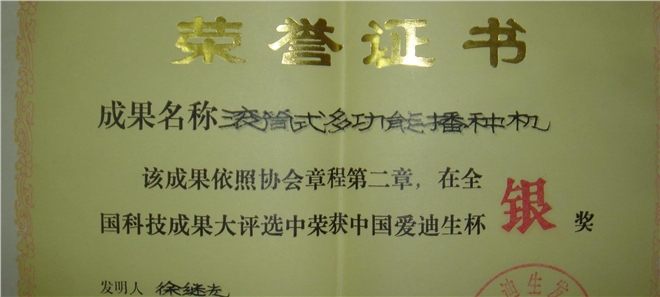 荣誉证书
成果名称滚筒式多功能播种机
该成果依照协会章程第二章，在全
国科技成果大评选中荣获中国爱迪生杯 银 奖
发明人 徐继志
迪生发